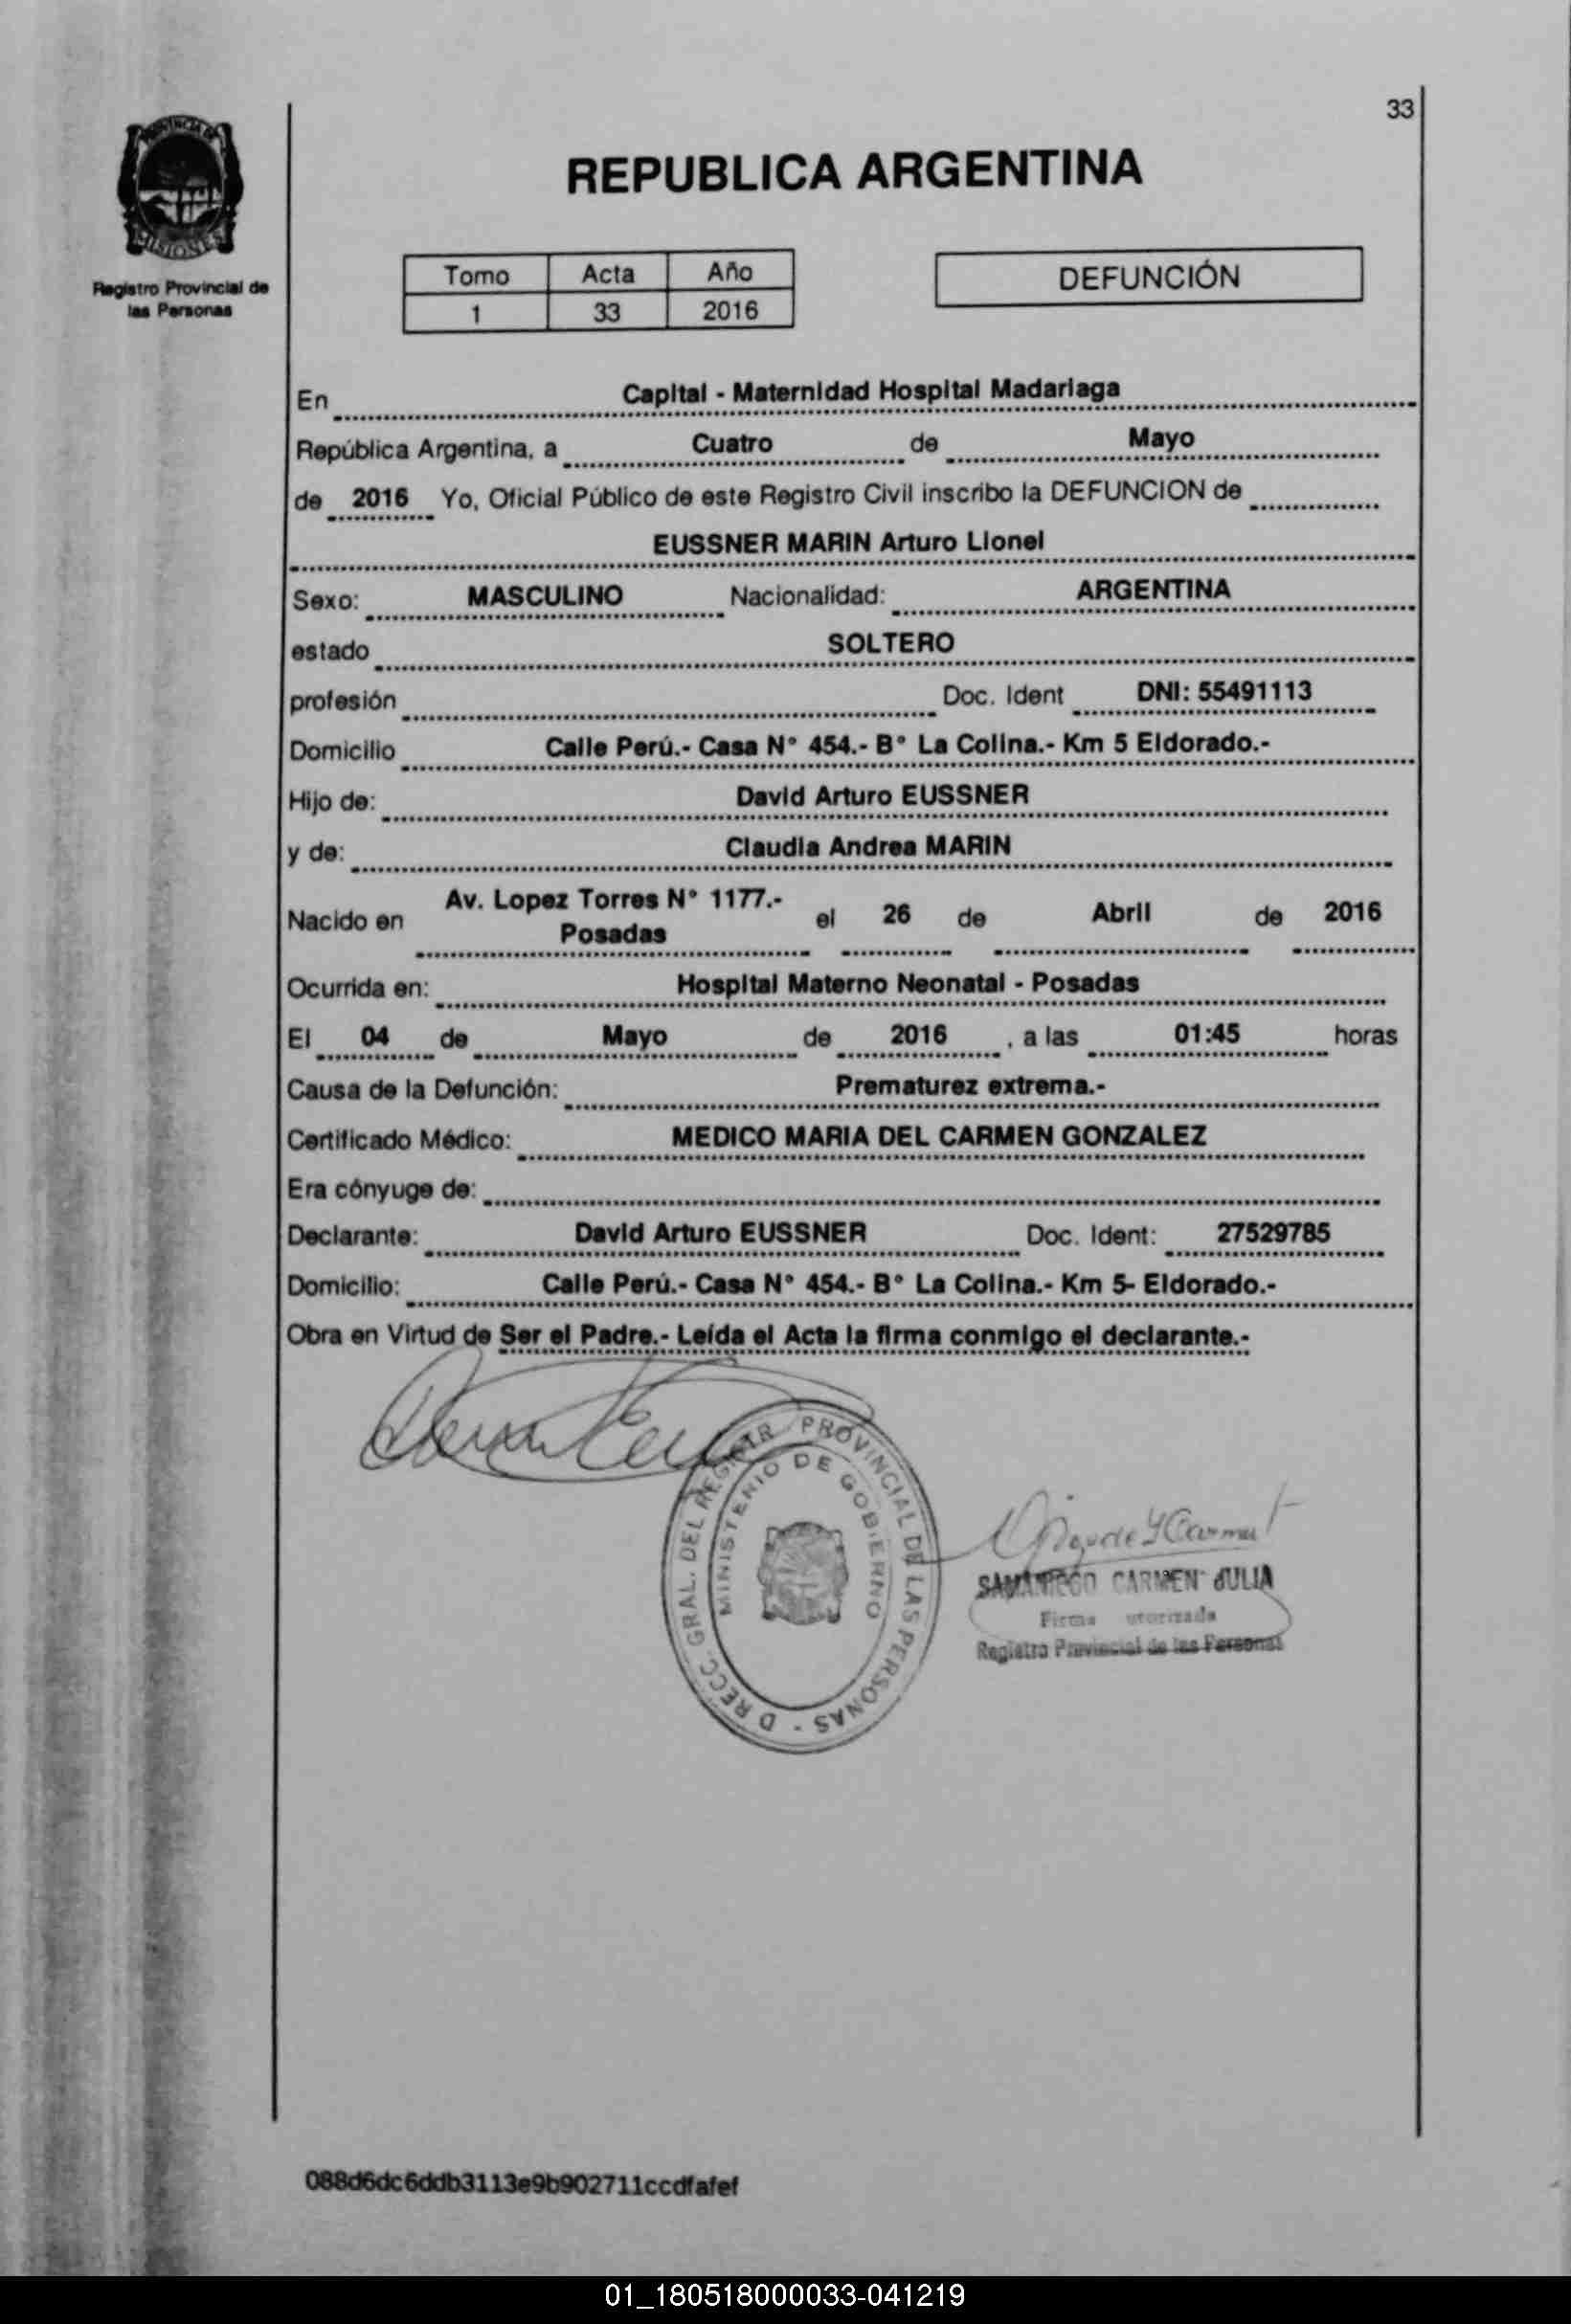 33
PROVINCIA DE
MISIONES
Registro Provincial de
las Personas
REPUBLICA ARGENTINA
Tomo Acta Año
1 33 2016
DEFUNCIÓN
En Capital - Maternidad Hospital Madariaga
República Argentina, a Cuatro de Mayo
de 2016 Yo, Oficial Público de este Registro Civil inscribo la DEFUNCION de
EUSSNER MARIN Arturo Lionel
Sexo: MASCULINO Nacionalidad: ARGENTINA
estado SOLTERO
profesión Doc. Ident DNI: 55491113
Domicilio Calle Perú.- Casa N° 454.- B° La Colina.- Km 5 Eldorado.-
Hijo de: David Arturo EUSSNER
y de: Claudia Andrea MARIN
Av. Lopez Torres N° 1177.-
Nacido en Posadas el 26 de Abril de 2016
Ocurrida en: Hospital Materno Neonatal - Posadas
El 04 de Mayo de 2016 , a las 01:45 horas
Causa de la Defunción: Prematurez extrema.-
Certificado Médico: MEDICO MARIA DEL CARMEN GONZALEZ
Era cónyuge de:
Declarante: David Arturo EUSSNER Doc. Ident: 27529785
Domicilio: Calle Perú.- Casa N° 454.- B° La Colina.- Km 5- Eldorado.-
Obra en Virtud de Ser el Padre.- Leída el Acta la firma conmigo el declarante.-
D RECC. GRAL. DEL REGISTR PROVINCIAL DE LAS PERSONAS -
MINISTERIO DE GOBIERNO
SAMANIEGO CARMEN JULIA
Firma utorizada
Registro Provincial de las Personas
088d6dc6ddb3113e9b902711ccdfafef
01_180518000033-041219